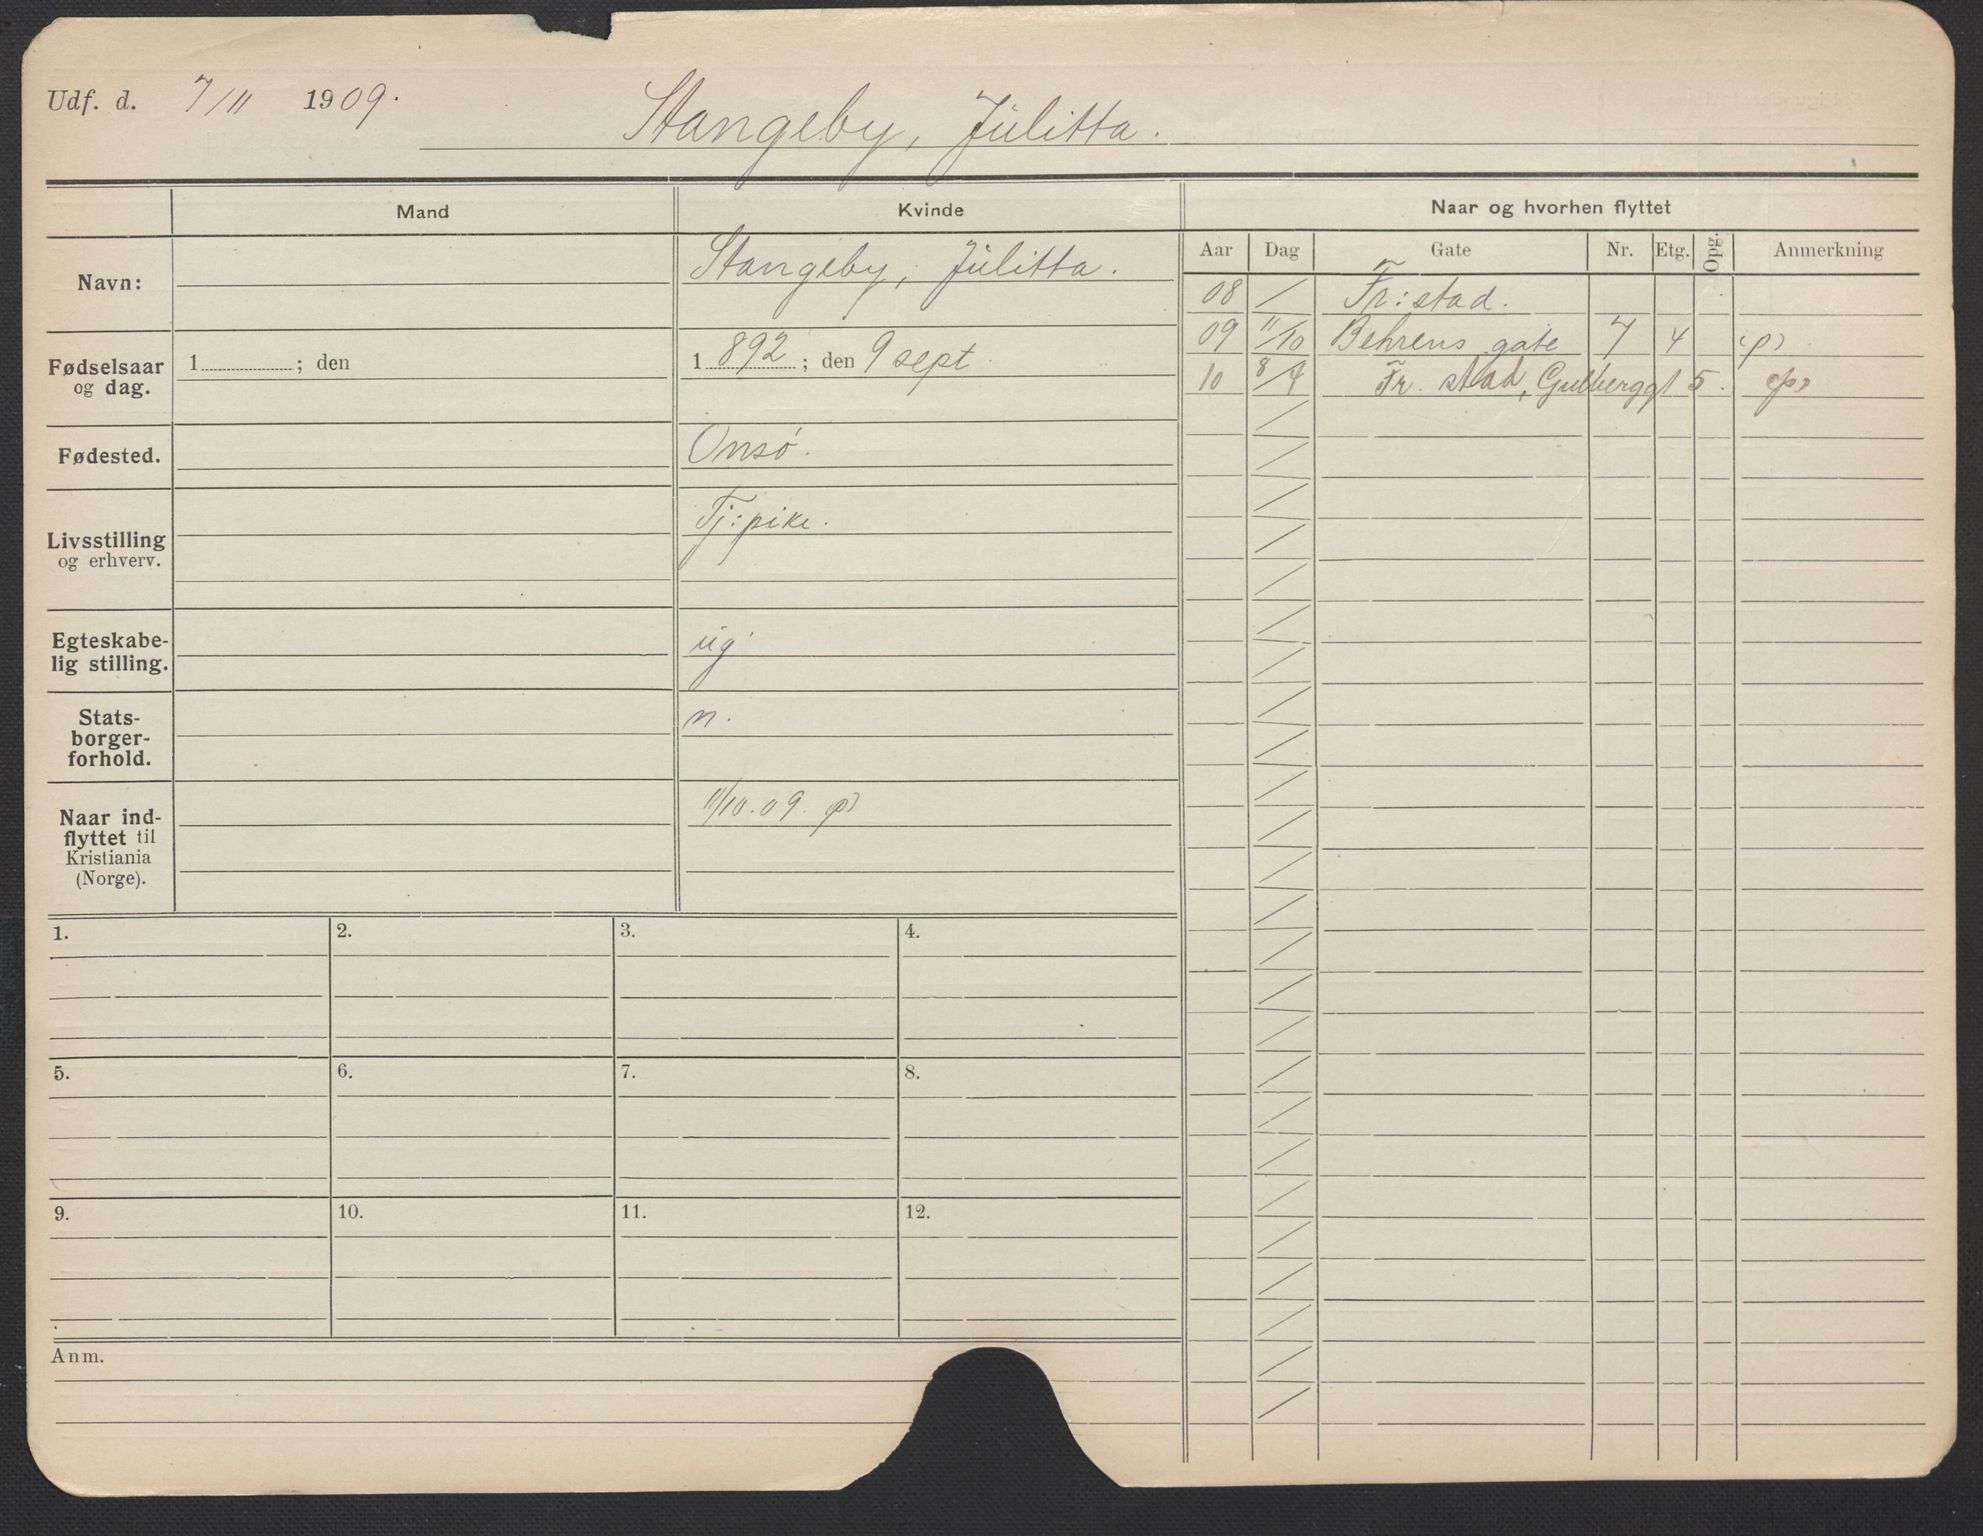 Udf. d. 7/11 1909.
Stangeby, Julitta.
Mand
Kvinde
Naar og hvorhen flyttet
Aar Dag Gate Nr. Etg. Opg. Anmerkning
Navn:
Stangeby, Julitta.
Fødselsaar
og dag.
1 ; den
1 892 ; den 9 sept.
Fødested.
Onsö.
Livsstilling
og erhverv.
Tj: pike.
Egteskabe-
lig stilling.
ug
Stats-
borger-
forhold.
n.
Naar ind-
flyttet til
Kristiania
(Norge).
11/10. 09. p)
08 / Fr: stad.
09 11/10 Behrens gate 7 4 (p)
10 8/4 Fr. stad, Gulberggt 5. (p)
1. 2. 3. 4.
5. 6. 7. 8.
9. 10. 11. 12.
Anm.